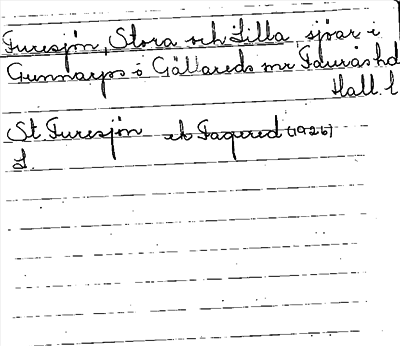 Furesjön, Stora och Lilla, sjöar i
Gunnarps o Gällareds snr Faurås hd
Hall. l
St. Furesjön ek Fagered (1926)
L.